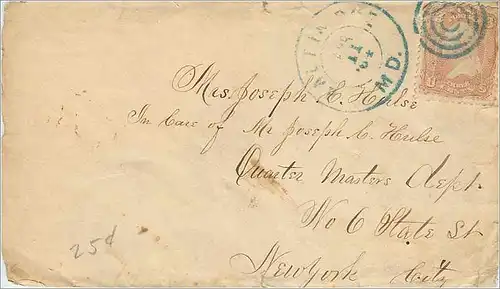 BALTIMORE
MD.
Mrs. Joseph C. Hulse
In Care of Mr Joseph C. Hulse
Quarter Masters Dept.
No 6 State St
New York City
25¢